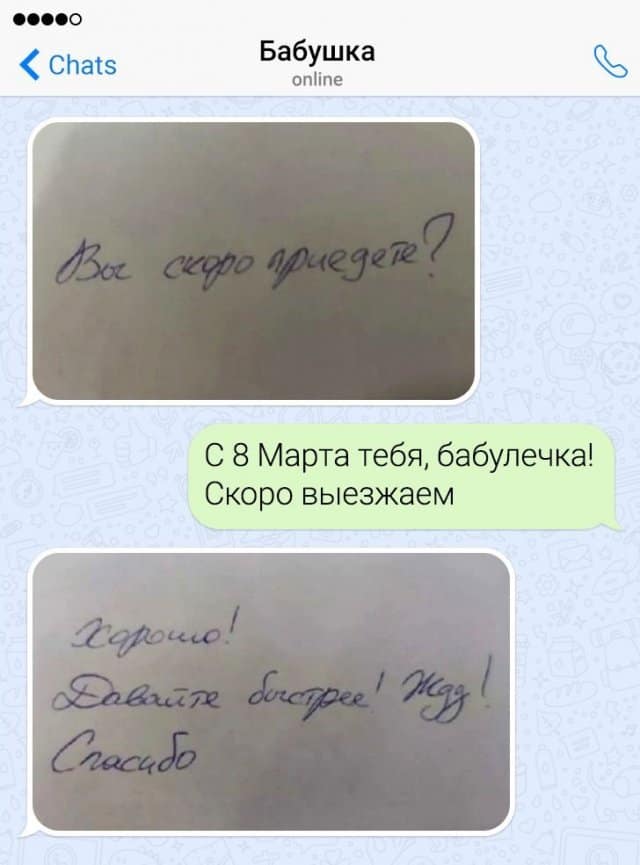 Chats
Бабушка
online
Вы скоро приедете?
С 8 Марта тебя, бабулечка!
Скоро выезжаем
Хорошо!
Давайте быстрее! Жду!
Спасибо